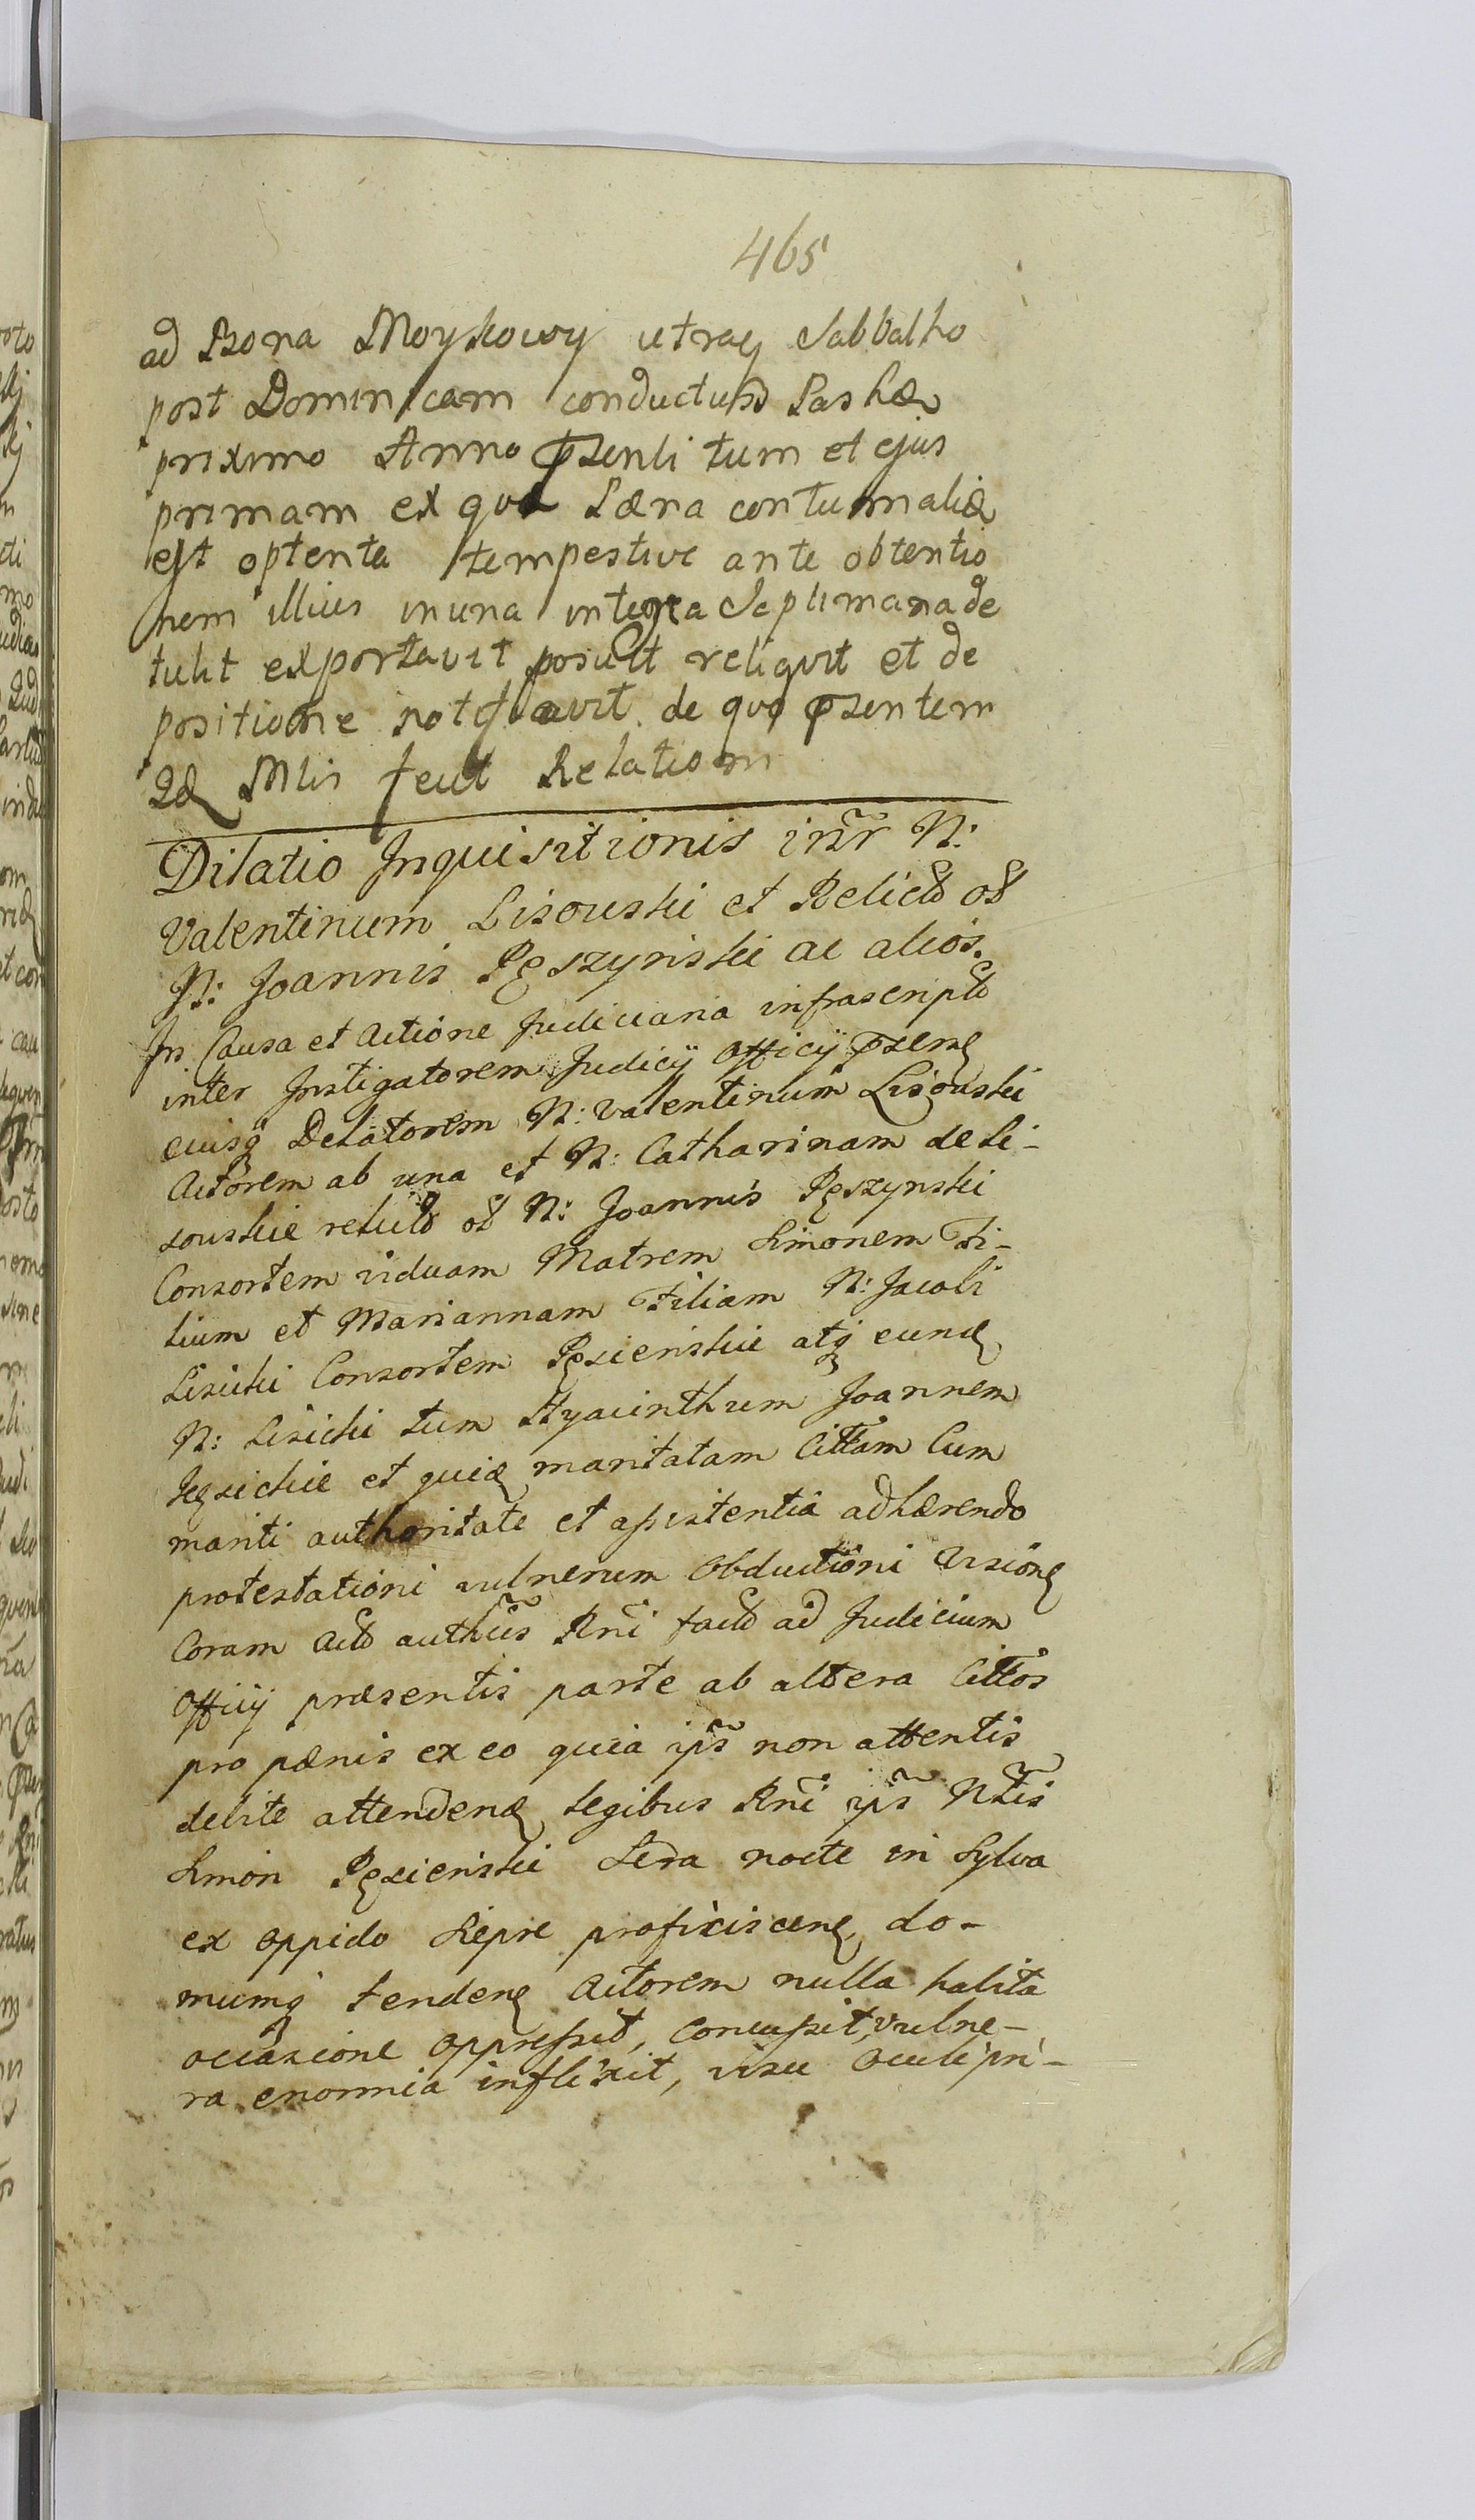 465
ad Bona Moykowy utraq Sabbatho
post Dominicam conductus Paskæ
priximo Anno præsenti tum et ejus
primam ex qua Pæna contumatiæ
est optenta tempestive ante obtentio
nem illius in una integra Septimana de
tulit exportavit posuit reliquit et de
positione notificavit de quo præsentem
Mlis fecit Relatiom
Dilatio Inquisitionis intr N:
Valentinum Lisouski et Relictã oł
N: Joannis Pęszynski ac alios.
In Causa et Actione Judiciaria infrascriptã
inter Instigatorem Judicÿ Officÿ præsenẽ
eiusq Delatorem N: Valentinum Lisouski
Actorem ab una et N: Catharinam de Li-
souskie relictã oł N: Joannis Pęszynski
Consortem viduam Matrem Simonem Fi-
lium et Mariannam Filiam N: Jacobi
Lisicki Consortem Pęsienskie atq eunđ
N: Lisicki tum Hyacinthum Joannem
et quiđ maritatam Cittam Cum
mariti authoritate et assistentia adhærendo
protestationi vulnerum Obductioni Visionẽ
Coram Actã authcis Rni factã ad Judicium
Officÿ præsentis parte ab altera Cittos
pro pænis ex eo quia ips non attentis
debite attendenđ legibus Rni ips Nblis
Simon Pęsienski Sera nocte in Sylva
ex oppido Siepre proficiscenẽ do-
mumq tendenẽ Actorem nulla habita
occasione oppressit, Concussit, vulne-
ra enormia inflixit, visu Oculi pri-